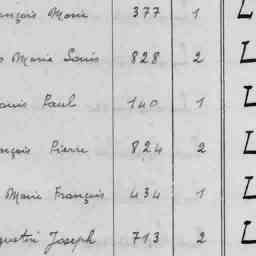 ançois Marie 377 1 L
Marie Louis 828 2 L
ouis Paul 140 1 L
ançois Pierre 824 2 L
Marie François 434 1 L
gustin Joseph 713 2 L